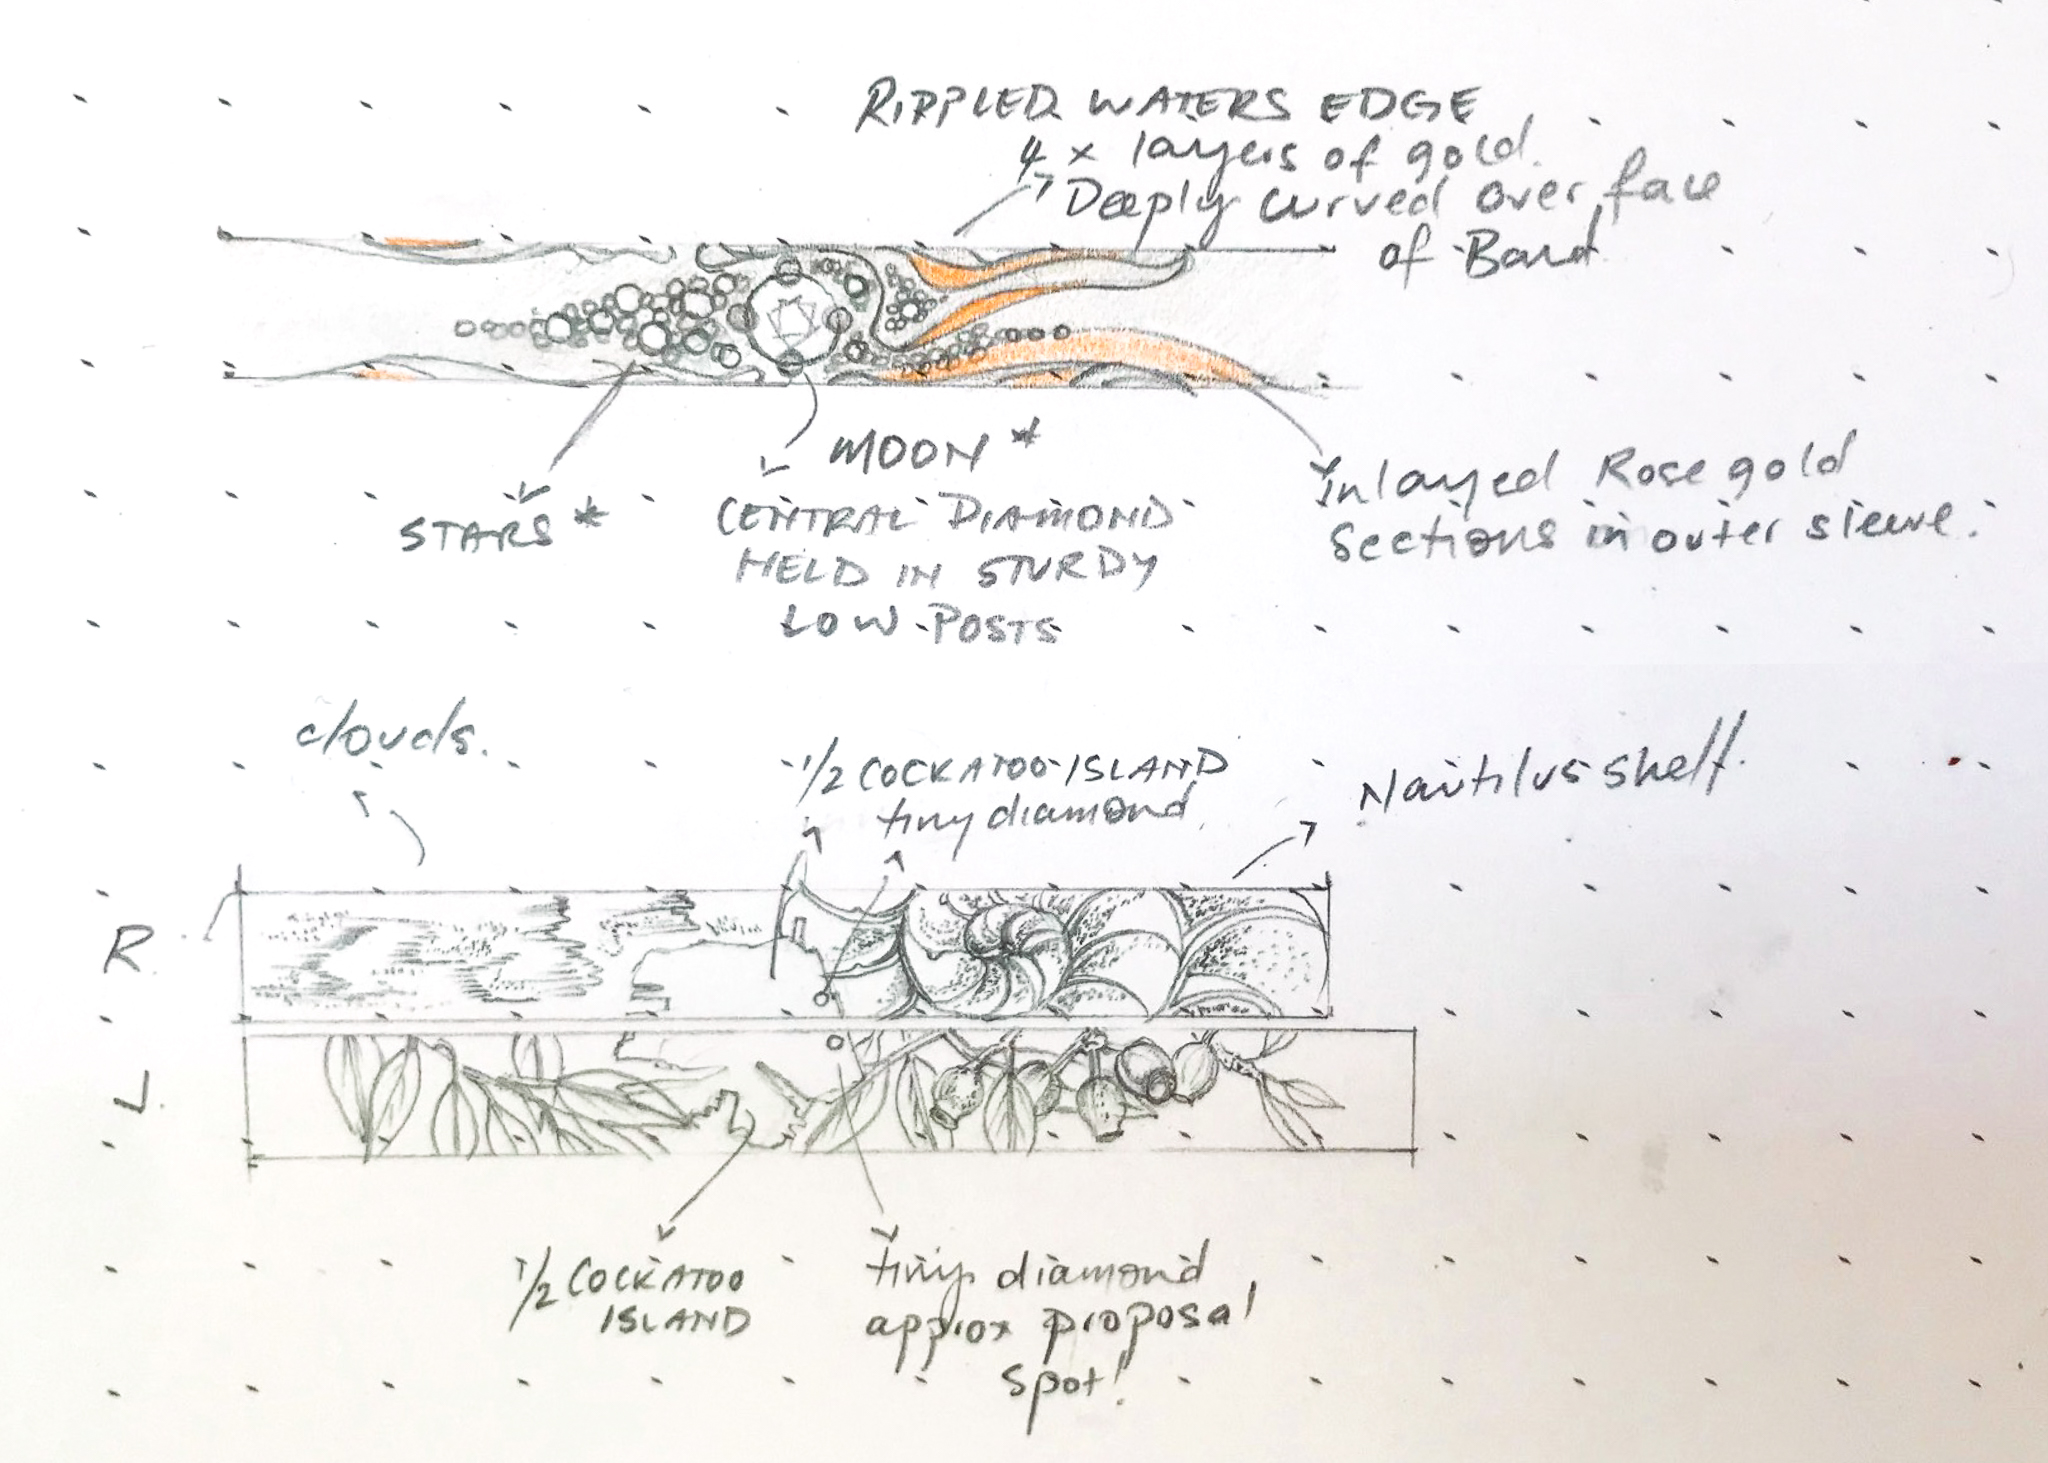 RIPPLED WATERS EDGE
4 x layers of gold.
Deeply curved over face
of Band
MOON *
STARS *
CENTRAL DIAMOND
HELD IN STURDY
LOW POSTS
Inlayed Rose gold
Sections in outer sleeve.
clouds.
1/2 COCKATOO ISLAND
tiny diamond
Nautilus shell.
R
L
1/2 COCKATOO
ISLAND
tiny diamond
approx proposal
spot!